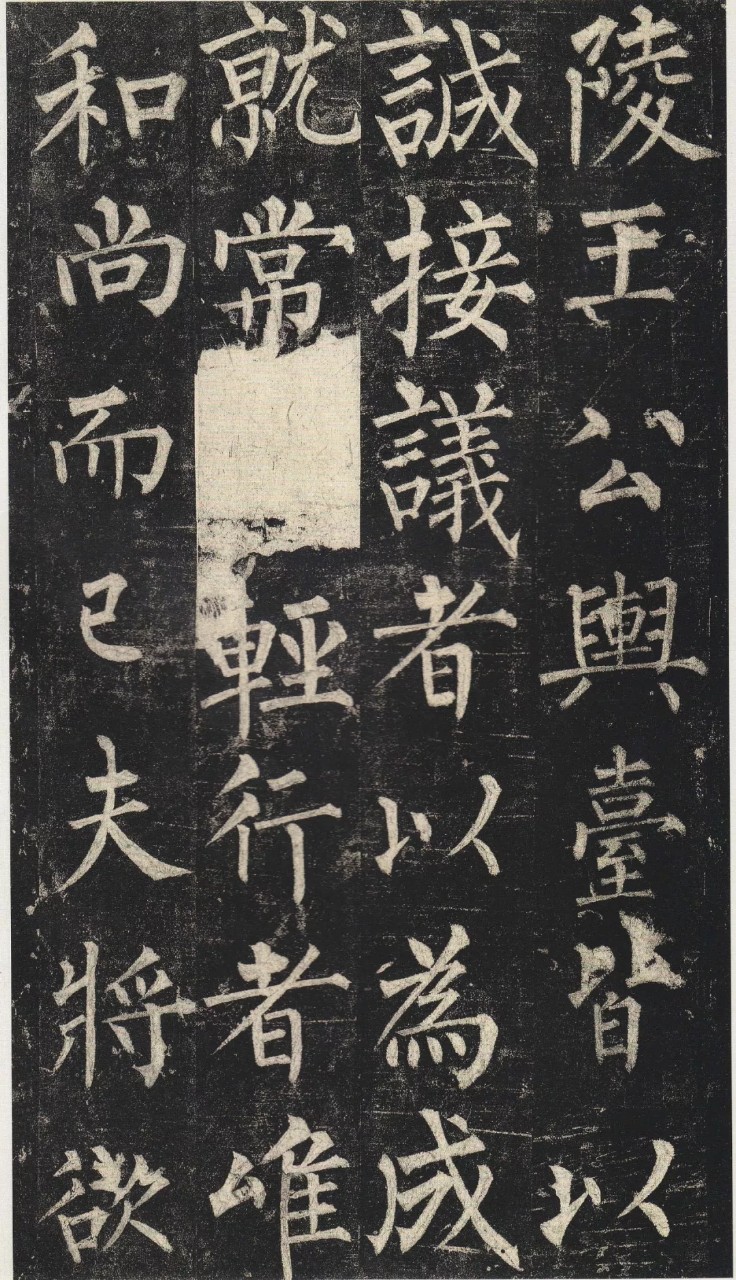 陵王公輿臺皆以
誠接議者以為成
就常輕行者唯
和尚而已夫將欲